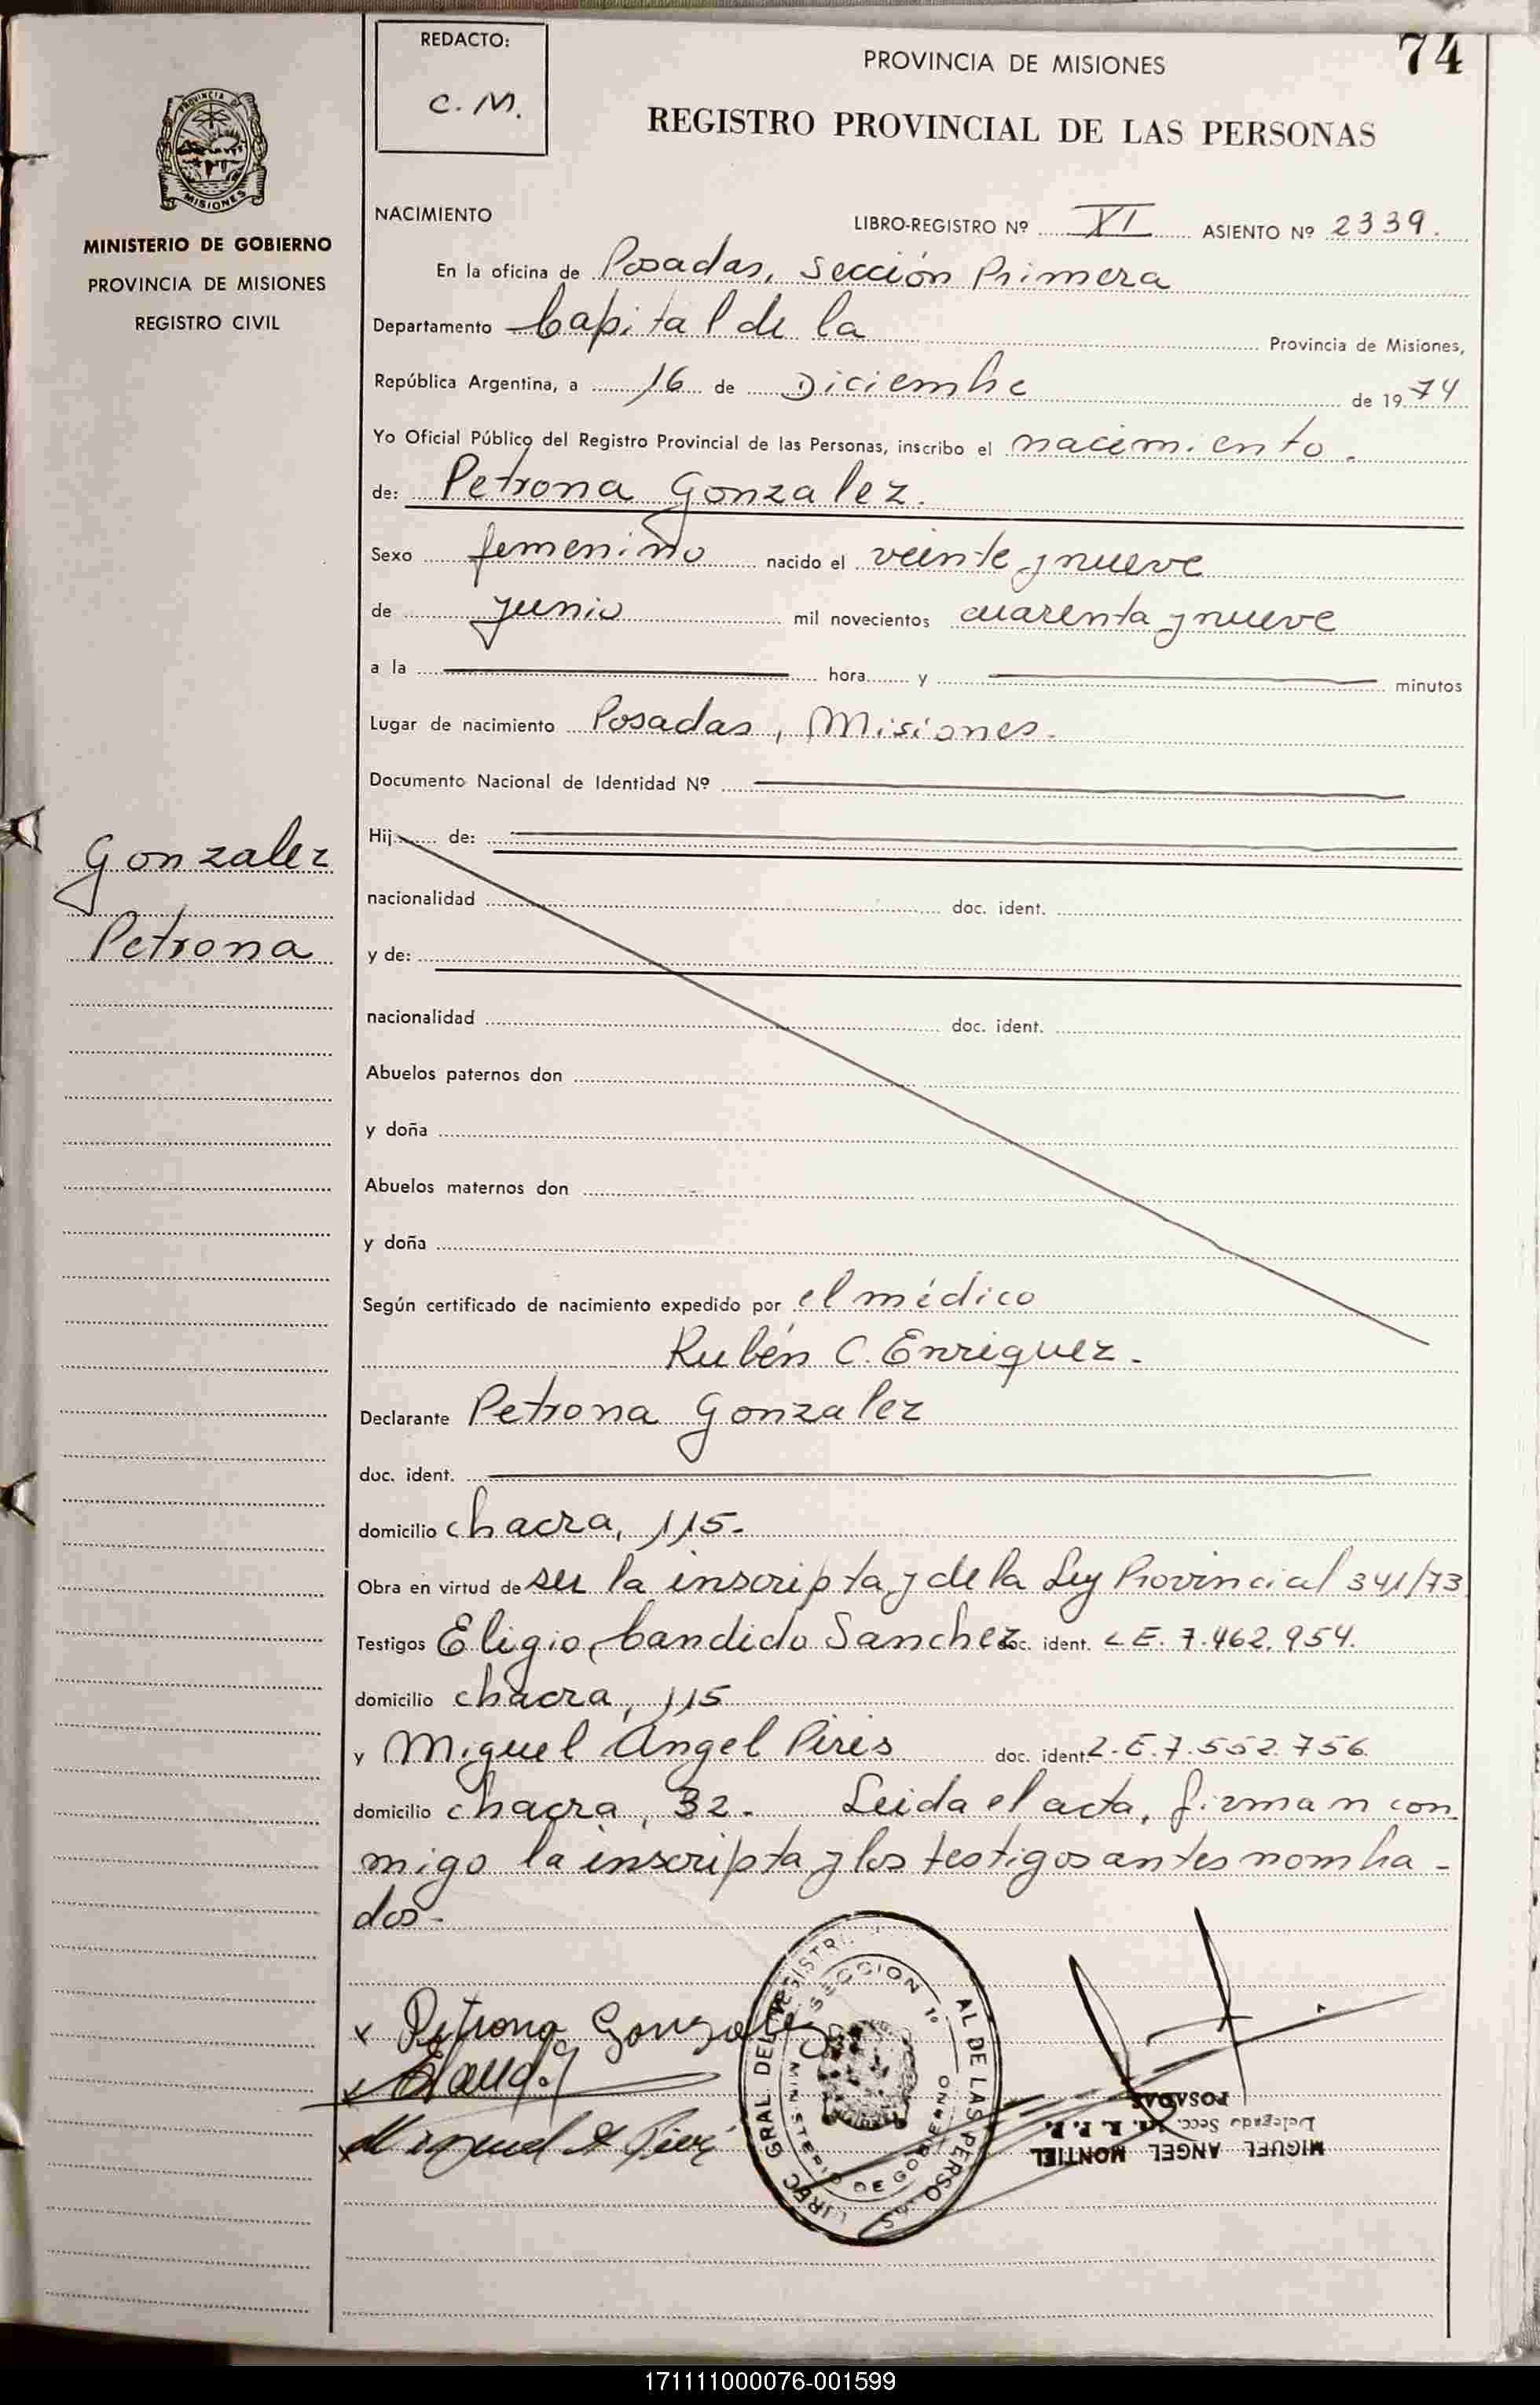 74
REDACTO:
C. M.
PROVINCIA DE MISIONES
REGISTRO PROVINCIAL DE LAS PERSONAS
PROVINCIA DE
MISIONES
MINISTERIO DE GOBIERNO
PROVINCIA DE MISIONES
REGISTRO CIVIL
NACIMIENTO
LIBRO-REGISTRO Nº XI ASIENTO Nº 2339.
En la oficina de Posadas, Sección Primera
Departamento Capital de la Provincia de Misiones,
República Argentina, a 16 de Diciembre de 1974
Yo Oficial Público del Registro Provincial de las Personas, inscribo el nacimiento.
de: Petrona Gonzalez.
Sexo femenino nacido el veinte y nueve
de junio mil novecientos cuarenta y nueve
a la hora y minutos
Lugar de nacimiento Posadas, Misiones.
Documento Nacional de Identidad Nº
Hij de:
Gonzalez
Petrona
nacionalidad doc. ident.
y de:
nacionalidad doc. ident.
Abuelos paternos don
y doña
Abuelos maternos don
y doña
Según certificado de nacimiento expedido por el médico
Rubén C. Enriquez.
Declarante Petrona Gonzalez
doc. ident.
domicilio chacra, 115.
Obra en virtud de ser la inscripta y de la Ley Provincial 341/73
Testigos Eligio Candido Sanchez doc. ident. L E. 7.462.954.
domicilio chacra, 115
y Miguel Angel Piris doc. ident. L. E. 7.552.756.
domicilio chacra, 32. Leida el acta, firman con
migo la inscripta y los testigos antes nombra-
dos-
x Petrona Gonzalez
x Miguel A Piris
DIREC. GRAL. DEL REGISTR AL DE LAS PERSO AS
SECCION 1º
MINISTERIO DE GOBIERNO
MIGUEL ANGEL MONTIEL
Delegado Secc. R. P. P.
POSADAS
171111000076-001599